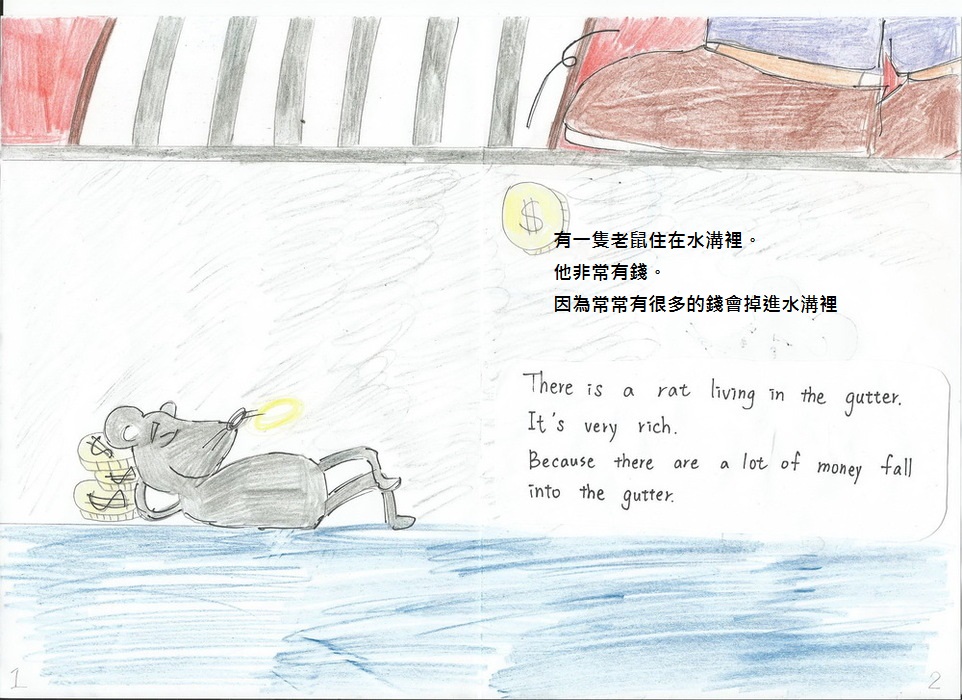 有一隻老鼠住在水溝裡。
他非常有錢。
因為常常有很多的錢會掉進水溝裡
There is a rat living in the gutter.
It's very rich.
Because there are a lot of money fall
into the gutter.
$
$
$
$
1
2